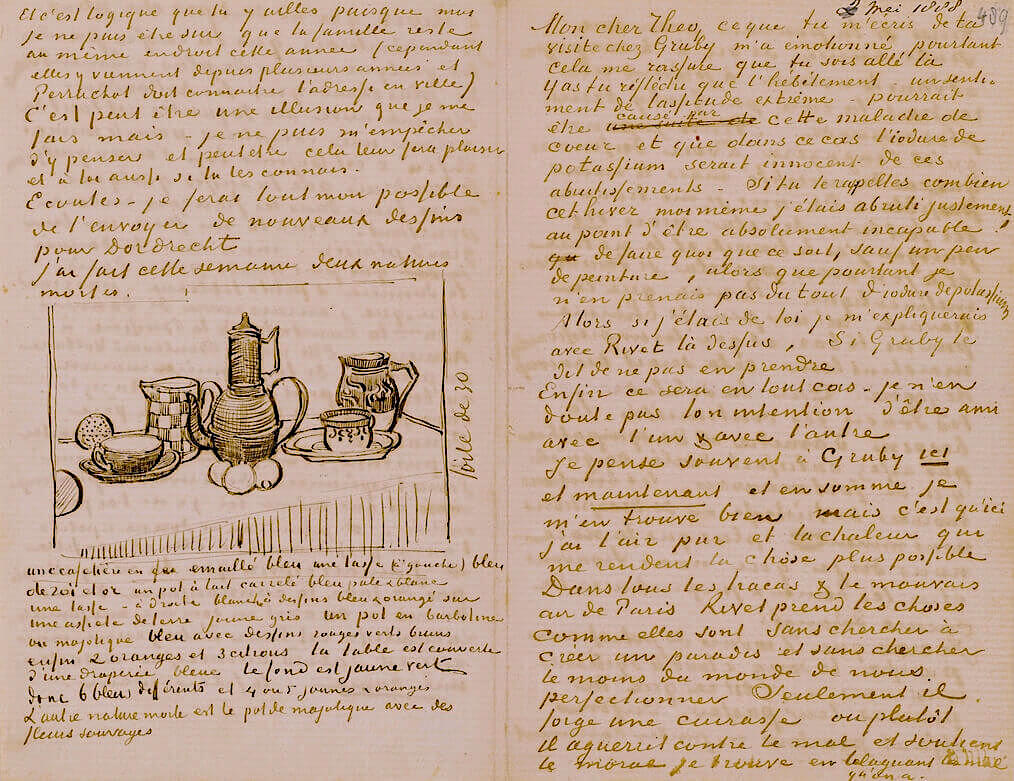 Et c'est logique que tu y ailles puisque moi
je ne puis être sur que la famille reste
au même endroit cette année (cependant
elles y viennent depuis plusieurs années et
Perruchot doit connaitre l'adresse en ville)
C'est peut être une illusion que je me
fais mais – je ne puis m'empêcher
d'y penser et peutetre cela leur fera plaisir
et à toi aussi si tu les connais.
Ecoutes – je ferai tout mon possible
de t'envoyer de nouveaux dessins
pour Dordrecht
J'ai fait cette semaine deux natures
mortes.
toile de 30
une cafetière en fer emaillé bleu une tasse (à gauche) bleu
de roi et or un pot à lait carrelé bleu pale & blanc
une tasse – à droite blanche à dessins bleu & orangé sur
une assiete de terre jaune gris un pot en barbotine
ou majolique bleu avec dessins rouges verts bruns
enfin 2 oranges et 3 citrons la table est couverte
d'une draperie bleue le fond est jaune vert
donc 6 bleus différents et 4 ou 5 jaunes & orangés
L'autre nature morte est le pot de majolique avec des
fleurs sauvages
2 Mei 1888.
489
Mon cher Theo, ce que tu m'écris de ta
visite chez Gruby m'a émotionné, pourtant
cela me rassure que tu sois allé là
Y as tu réfléchi que l'hébêtement – un senti-
ment de lassitude extrême – pourrait
être une suite de causé par cette maladie de
coeur et que dans ce cas l'iodure de
potassium serait innocent de ces
abrutissements – Si tu te rapelles combien
cet hiver moi même j'étais abruti justement
au point d'être absolument incapable
qu de faire quoi que ce soit, sauf un peu
de peinture, alors que pourtant je
n'en prenais pas du tout d'iodure de potassium
Alors si j'étais de toi je m'expliquerais
avec Rivet là dessus, Si Gruby te
dit de ne pas en prendre
Enfin ce sera en tout cas – je n'en
doute pas ton intention d'être ami
avec l'un & avec l'autre
Je pense souvent à Gruby ici
et maintenant et en somme je
m'en trouve bien mais c'est qu'ici
j'ai l'air pur et la chaleur qui
me rendent la chose plus possible
Dans tous les tracas & le mauvais
air de Paris Rivet prend les choses
comme elles sont sans chercher à
créer un paradis et sans chercher
le moins du monde de nous
perfectionner Seulement il
forge une cuirasse ou plutôt
il aguerrit contre le mal et soutient
le moral je trouve en blaguant le mal
qu'on a.